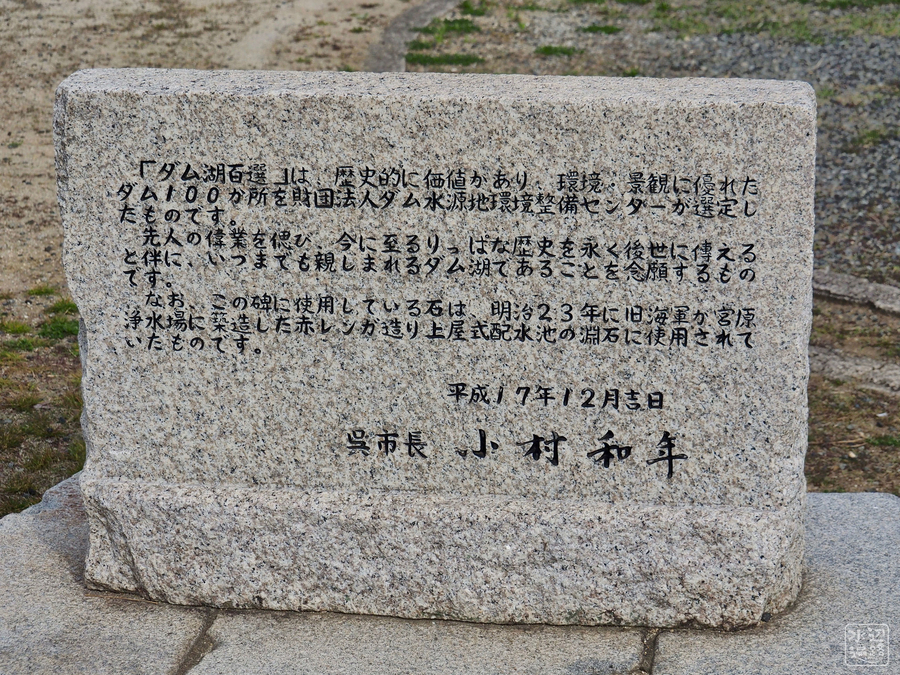 「ダム湖百選」は、歴史的に価値があり、環境・景観に優れた
ダム100か所を財団法人ダム水源地環境整備センターが選定し
たものです。
先人の偉業を偲び、今に至るりっぱな歴史を永く後世に傳える
と伴に、いつまでも親しまれるダム湖であることを念願するもの
です。
なお、この碑に使用している石は、明治23年に旧海軍が宮原
浄水場に築造した赤レンガ造り上屋式配水池の淵石に使用されて
いたものです。
平成17年12月吉日
呉市長 小村和年